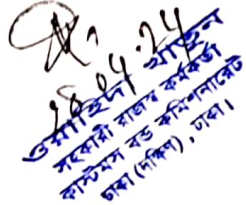 ১৪.০৭.২৪
ওয়াহিদা খাতুন
সহকারী রাজস্ব কর্মকর্তা
কাস্টমস বন্ড কমিশনারেট
ঢাকা (দক্ষিণ), ঢাকা।